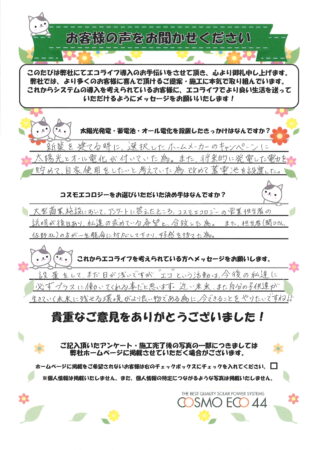 お客様の声をお聞かせください
このたびは弊社にてエコライフ導入のお手伝いをさせて頂き、心より御礼申し上げます。
弊社では、より多くのお客様に喜んで頂けるご提案・施工に本気で取り組んでいます。
これからシステムの導入を考えられているお客様に、エコライフでより良い生活を送って
いただけるようにメッセージをお願いいたします！
太陽光発電・蓄電池・オール電化を設置したきっかけはなんですか？
新築を建てる時に、選択したホームメーカーのキャンペーンに
太陽光とオール電化が付いていた為。また、将来的に発電した電力を
貯めて、日本使用をしたいと考えていた為 改めて蓄電池を設置した。
コスモエコロジーをお選びいただいた決め手はなんですか？
大型商業施設において、アンケートに答えたところ、コスモエコロジーの営業担当者の
説明が後日あり、私達の求めている希望と、合致した為。また、担当者
のお方が一生懸命に対応して下さり、好感を持てた為。
これからエコライフを考えられている方へメッセージをお願いします。
設置をしてまだ日が浅いですが"エコ"という活動は、今後の私達に
必ずプラスに働いてくれる事だと思います。近い未来、また自分の子供達が
生きていく未来に残せる環境がより良い物である為に、今できることをやりたいですね!!
貴重なご意見をありがとうございました！
ご記入頂いたアンケート・施工完了後の写真の一部につきましては
弊社ホームページに掲載させていただく場合がございます。
ホームページに掲載をご希望されないお客様は右のチェックボックスにチェックを入れてください。
※個人情報は掲載いたしません。また、個人情報の特定につながるような写真は掲載いたしません。
THE BEST QUALITY SOLAR POWER SYSTEMS
COSMO ECO 44